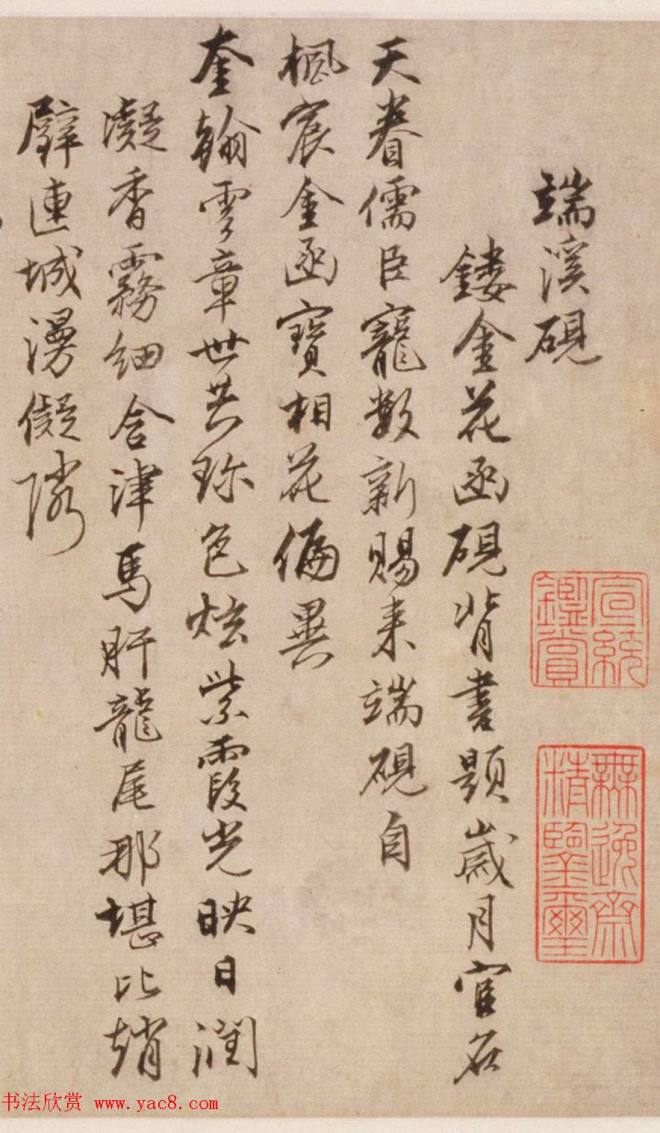 端溪硯
鏤金花函硯背書題歲月官名
天眷儒臣寵數新賜来端硯自
楓宸金函寳相花偏異
奎翰雲章世共珎色炫紫霞光映日潤
凝香霧細含津馬肝龍尾那堪比趙
璧連城漫儗隣
宣統
鑑賞
無逸齋
精鑒璽
书法欣赏 www.yac8.com